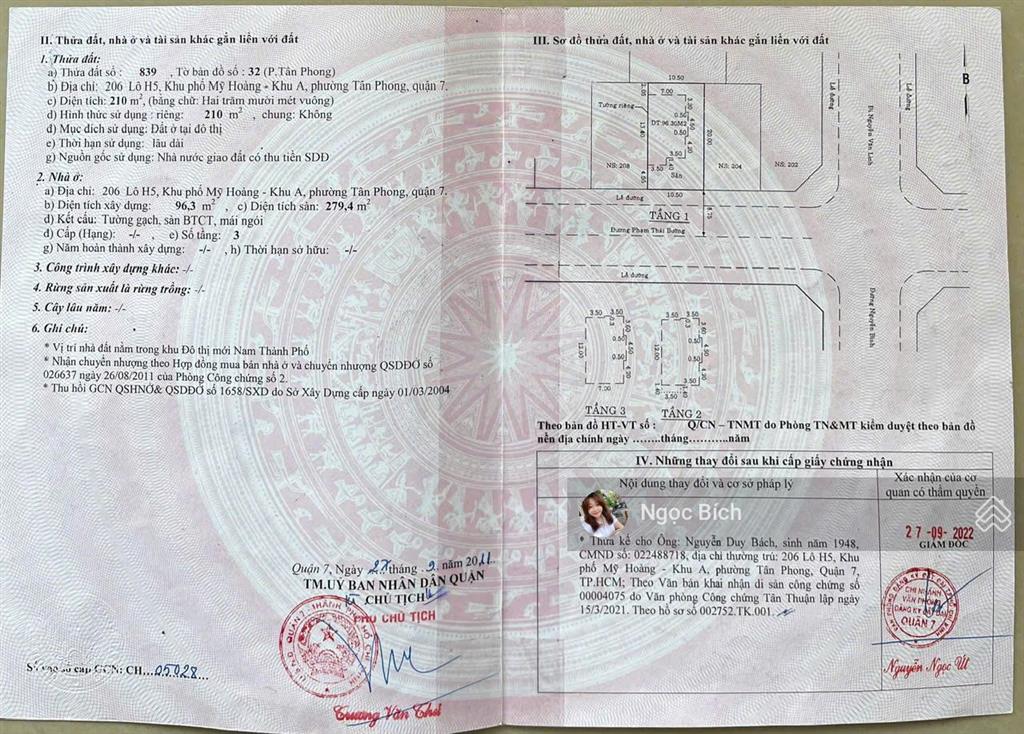 II. Thửa đất, nhà ở và tài sản khác gắn liền với đất
1. Thửa đất:
a) Thửa đất số : 839 , Tờ bản đồ số : 32 (P.Tân Phong)
b) Địa chỉ: 206 Lô H5, Khu phố Mỹ Hoàng - Khu A, phường Tân Phong, quận 7.
c) Diện tích: 210 m², (bằng chữ: Hai trăm mười mét vuông)
d) Hình thức sử dụng : riêng: 210 m² , chung: Không
đ) Mục đích sử dụng: Đất ở tại đô thị
e) Thời hạn sử dụng: lâu dài
g) Nguồn gốc sử dụng: Nhà nước giao đất có thu tiền SDĐ
2. Nhà ở:
a) Địa chỉ: 206 Lô H5, Khu phố Mỹ Hoàng - Khu A, phường Tân Phong, quận 7.
b) Diện tích xây dựng: 96,3 m² , c) Diện tích sàn: 279,4 m²
d) Kết cấu: Tường gạch, sàn BTCT, mái ngói
đ) Cấp (Hạng): -/- , e) Số tầng: 3
g) Năm hoàn thành xây dựng: -/- , h) Thời hạn sở hữu: -/-
3. Công trình xây dựng khác: -/-
4. Rừng sản xuất là rừng trồng: -/-
5. Cây lâu năm: -/-
6. Ghi chú:
* Vị trí nhà đất nằm trong khu Đô thị mới Nam Thành Phố
* Nhận chuyển nhượng theo Hợp đồng mua bán nhà ở và chuyển nhượng QSDĐỞ số
026637 ngày 26/08/2011 của Phòng Công chứng số 2.
* Thu hồi GCN QSHNỞ& QSDĐỞ số 1658/SXD do Sở Xây Dựng cấp ngày 01/03/2004
Quận 7, Ngày 27 tháng 9 năm 2011
TM.UỶ BAN NHÂN DÂN QUẬN
CHỦ TỊCH
PHÓ CHỦ TỊCH
Trương Văn Thi
Số vào sổ cấp GCN: CH...05028...
III. Sơ đồ thửa đất, nhà ở và tài sản khác gắn liền với đất
B
10.50
7.00
Tường riêng
DT:96.30M2
3.30
0.50
4.50
0.50
4.20
3.50
3.50
13.40
20.00
4.50
Sân
NS: 208
NS: 204
NS: 202
10.50
Lề đường
TẦNG 1
Đường Phạm Thái Bường
Lề đường
Lề đường
Đi Nguyễn Văn Linh
Lề đường
Đường Nguyễn Bính
3.50 3.50
0.3
3.60
0.50
4.50
0.50
4.30
12.00
7.00
TẦNG 3
3.50 3.50
0.3
3.60
0.50
4.50
0.50
4.30
12.00
1.40
3.50
3.50
TẦNG 2
Theo bản đồ HT-VT số : Q/CN – TNMT do Phòng TN&MT kiểm duyệt theo bản đồ
nền địa chính ngày ........tháng...........năm
IV. Những thay đổi sau khi cấp giấy chứng nhận
Nội dung thay đổi và cơ sở pháp lý
Xác nhận của cơ
quan có thẩm quyền
Ngọc Bích
* Thừa kế cho Ông: Nguyễn Duy Bách, sinh năm 1948,
CMND số: 022488718, địa chỉ thường trú: 206 Lô H5, Khu
phố Mỹ Hoàng - Khu A, phường Tân Phong, Quận 7,
TP.HCM; Theo Văn bản khai nhận di sản công chứng số
00004075 do Văn phòng Công chứng Tân Thuận lập ngày
15/3/2021. Theo hồ sơ số 002752.TK.001.
27-09-2022
GIÁM ĐỐC
CHI NHÁNH
VĂN PHÒNG
ĐĂNG KÝ ĐẤT ĐAI
QUẬN 7
Nguyễn Ngọc Út